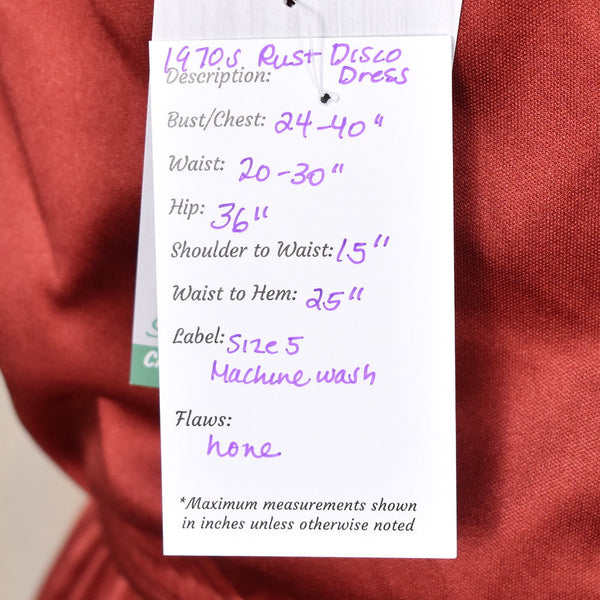 1970s Rust Disco
Description: Dress
Bust/Chest: 24-40"
Waist: 20-30"
Hip: 36"
Shoulder to Waist: 15"
Waist to Hem: 25"
Label: Size 5
Machine wash
Flaws:
none
*Maximum measurements shown
in inches unless otherwise noted